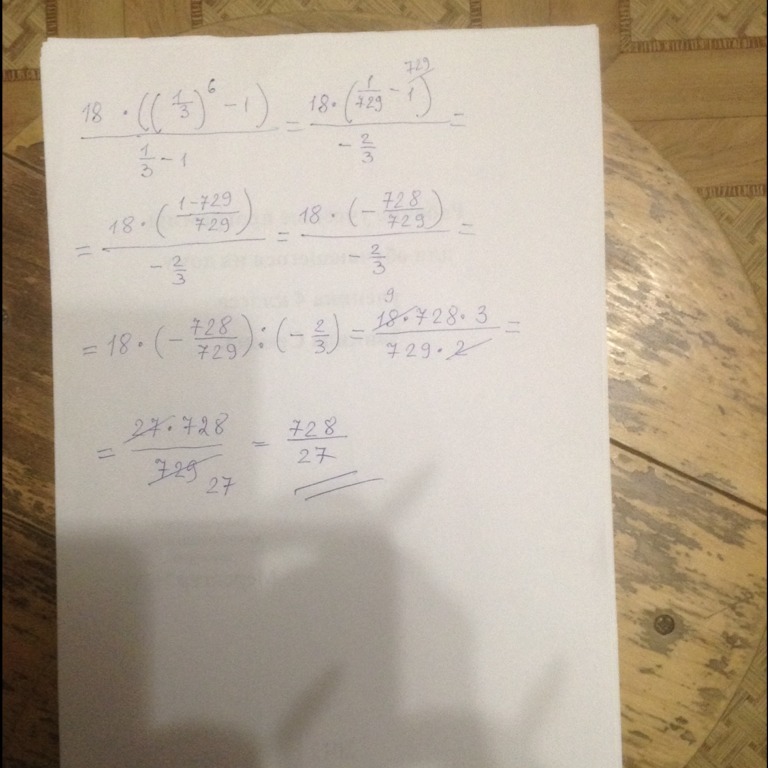 18 · ((1/3)^6 - 1) / (1/3 - 1) = 18 · (1/729 - 1^729) / (-2/3) =
= 18 · (1-729/729) / (-2/3) = 18 · (-728/729) / (-2/3) =
= 18 · (-728/729) : (-2/3) = 9 18 · 728 · 3 / 729 · 2 =
= 27 · 728 / 729 27 = 728/27